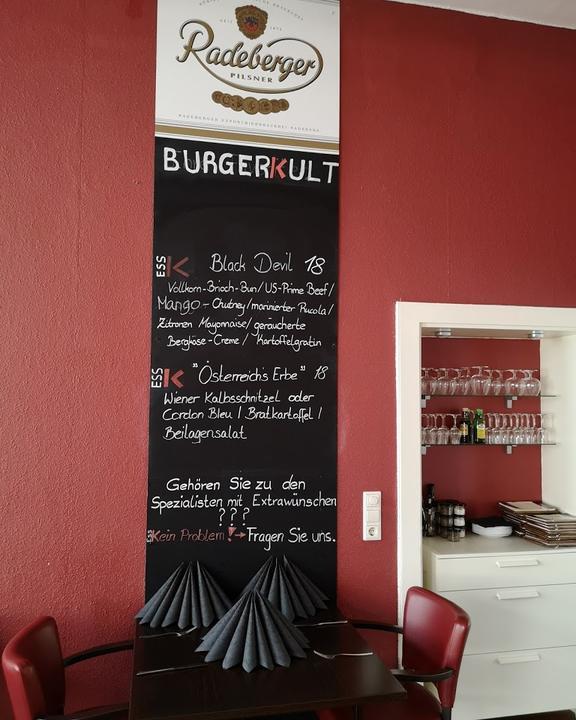 Radeberger
PILSNER
BURGERKULT
ESS K Black Devil 18
Vollkorn-Brioch-Bun/US-Prime Beef/
Mango-Chutney/marinierter Rucola/
Zitronen Mayonnaise/geräucherte
Bergkäse-Creme / Kartoffelgratin
ESS K "Österreichs Erbe" 18
Wiener Kalbsschnitzel oder
Cordon Bleu / Bratkartoffel /
Beilagensalat
Gehören Sie zu den
Spezialisten mit Extrawünschen
???
Kein Problem!→Fragen Sie uns.